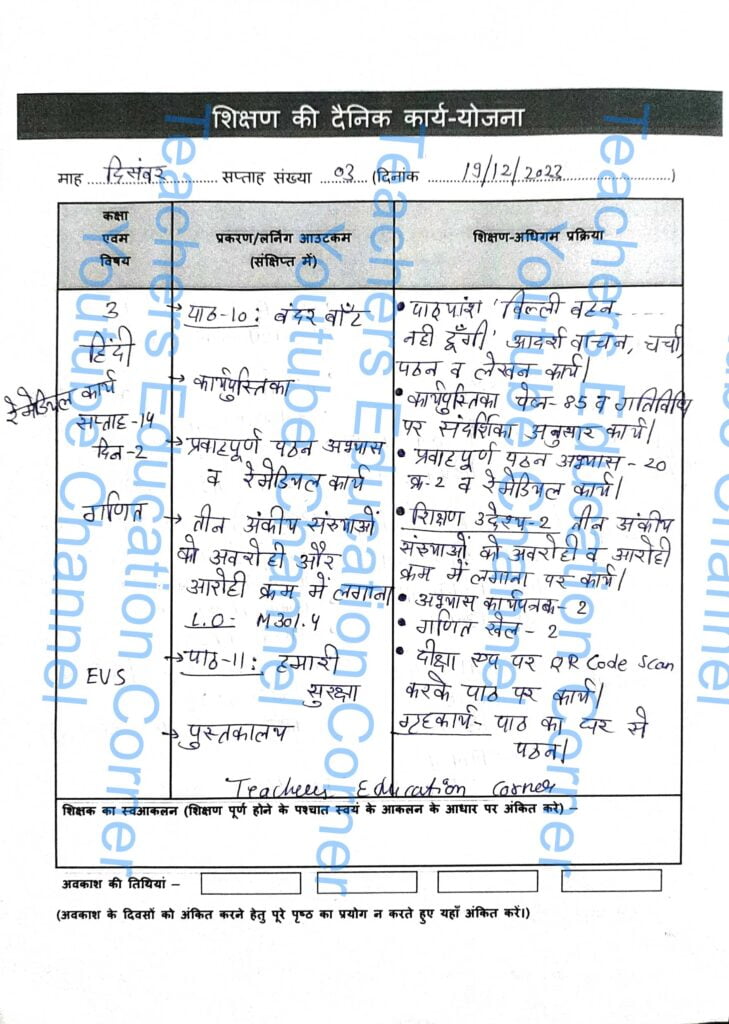 शिक्षण की दैनिक कार्य-योजना
माह दिसंबर सप्ताह संख्या 03 (दिनांक 19/12/2022)
कक्षा
एवम
विषय
प्रकरण/लर्निंग आउटकम
(संक्षिप्त में)
शिक्षण-अधिगम प्रक्रिया
3
हिंदी
रेमेडियल कार्य
सप्ताह -14
दिन-2
→ पाठ-10: बंदर बाँट
→ कार्यपुस्तिका
→ प्रवाहपूर्ण पठन अभ्यास
व रेमेडियल कार्य
• पाठ्यांश 'बिल्ली बहन ....
नही दूँगी' आदर्श वाचन, चर्चा,
पठन व लेखन कार्य।
• कार्यपुस्तिका पेज-85 व गतिविधि
पर संदर्शिका अनुसार कार्य।
• प्रवाहपूर्ण पठन अभ्यास - 20
क्र-2 व रेमेडियल कार्य।
गणित
→ तीन अंकीय संख्याओं
को अवरोही और
आरोही क्रम में लगाना
L.O- M301.4
• शिक्षण उद्देश्य-2 तीन अंकीय
संख्याओं को अवरोही व आरोही
क्रम में लगाना पर कार्य।
• अभ्यास कार्यपत्रक- 2
• गणित खेल - 2
EVS
→ पाठ-11: हमारी
सुरक्षा
→ पुस्तकालय
• दीक्षा एप पर QR Code Scan
करके पाठ पर कार्य।
गृहकार्य- पाठ का घर से
पठन।
Teachers Education Corner
शिक्षक का स्वआकलन (शिक्षण पूर्ण होने के पश्चात स्वयं के आकलन के आधार पर अंकित करे) –
अवकाश की तिथियां –
(अवकाश के दिवसों को अंकित करने हेतु पूरे पृष्ठ का प्रयोग न करते हुए यहाँ अंकित करें।)
Teachers Education Corner
Youtube Channel
Teachers Education Corner
Youtube Channel
Teachers Education Corner
Youtube Channel